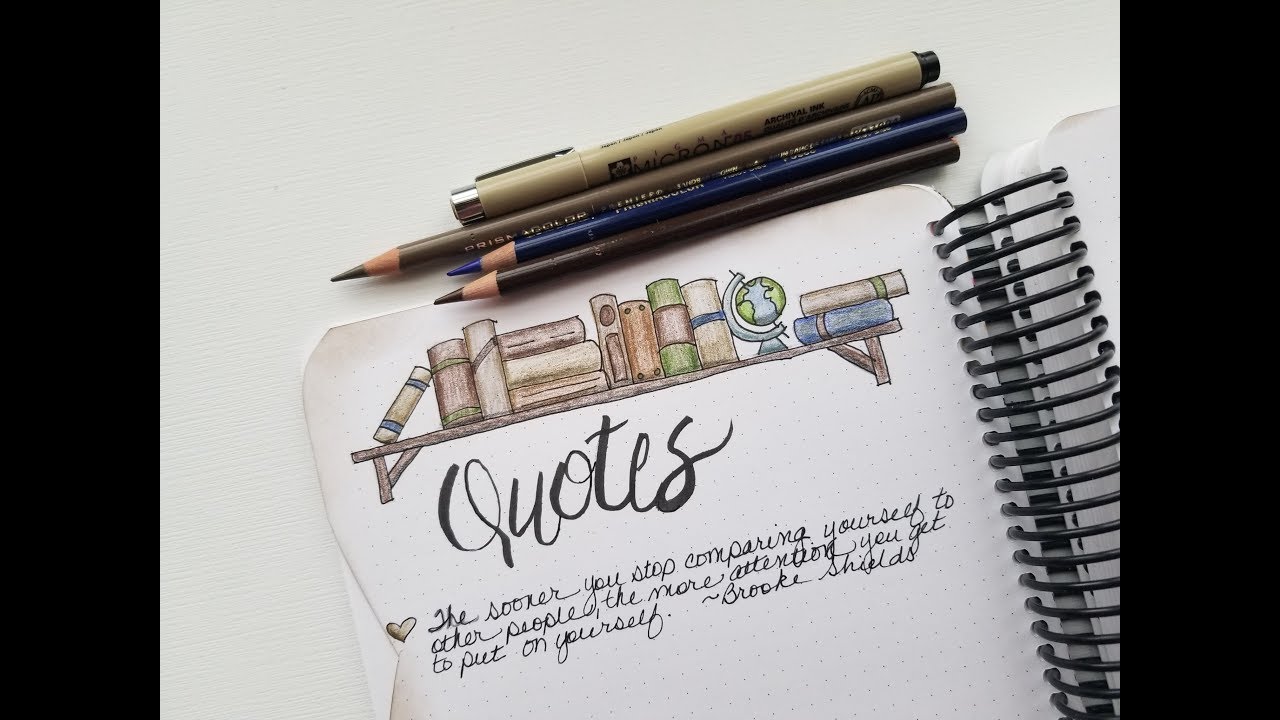 MICRON 05
ARCHIVAL INK
PRISMACOLOR PREMIER
PRISMACOLOR
Quotes
The sooner you stop comparing yourself to
other people, the more attention you get
to put on yourself. ~Brooke Shields